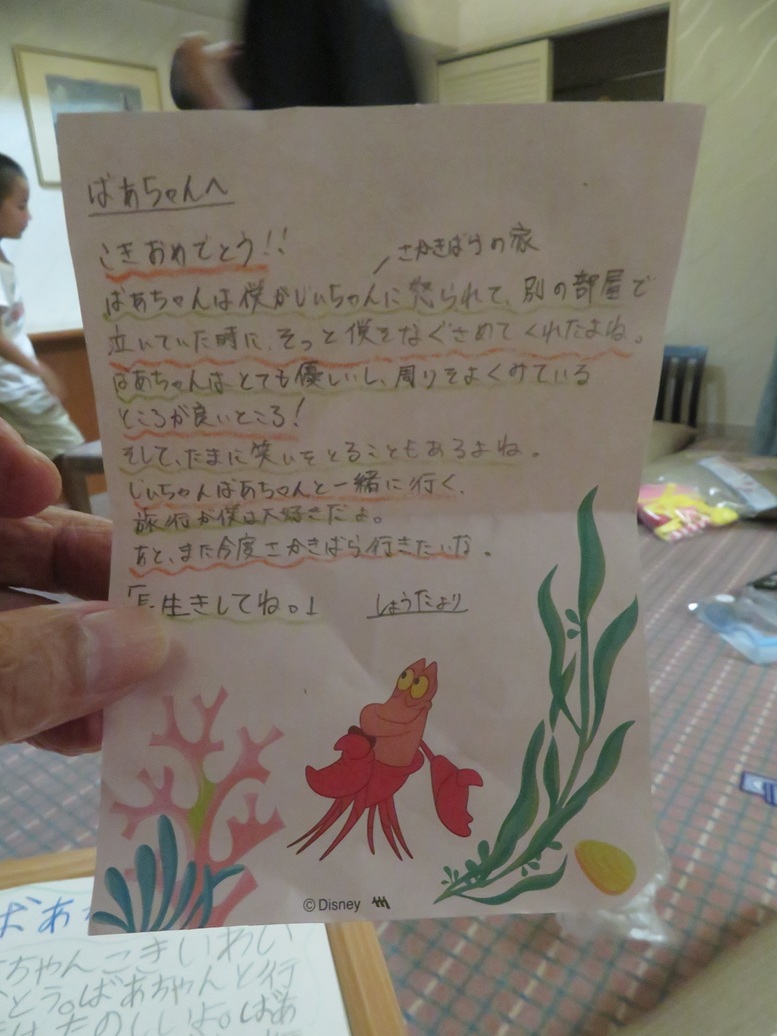 ばあちゃんへ
こきおめでとう!!
さかきばらの家
ばあちゃんは僕がじいちゃんに怒られて、別の部屋で
泣いていた時に、そっと僕をなぐさめてくれたよね。
ばあちゃんはとても優しいし、周りをよくみている
ところが良いところ!
そして、たまに笑いをとることもあるよね。
じいちゃんばあちゃんと一緒に行く、
旅行が僕は大好きだよ。
あと、また今度さかきばら行きたいな。
「長生きしてね。」
しょうたより
© Disney
ばあ
ちゃんこきいわい
とう。ばあちゃんと行
はたのしいよ。ばあ